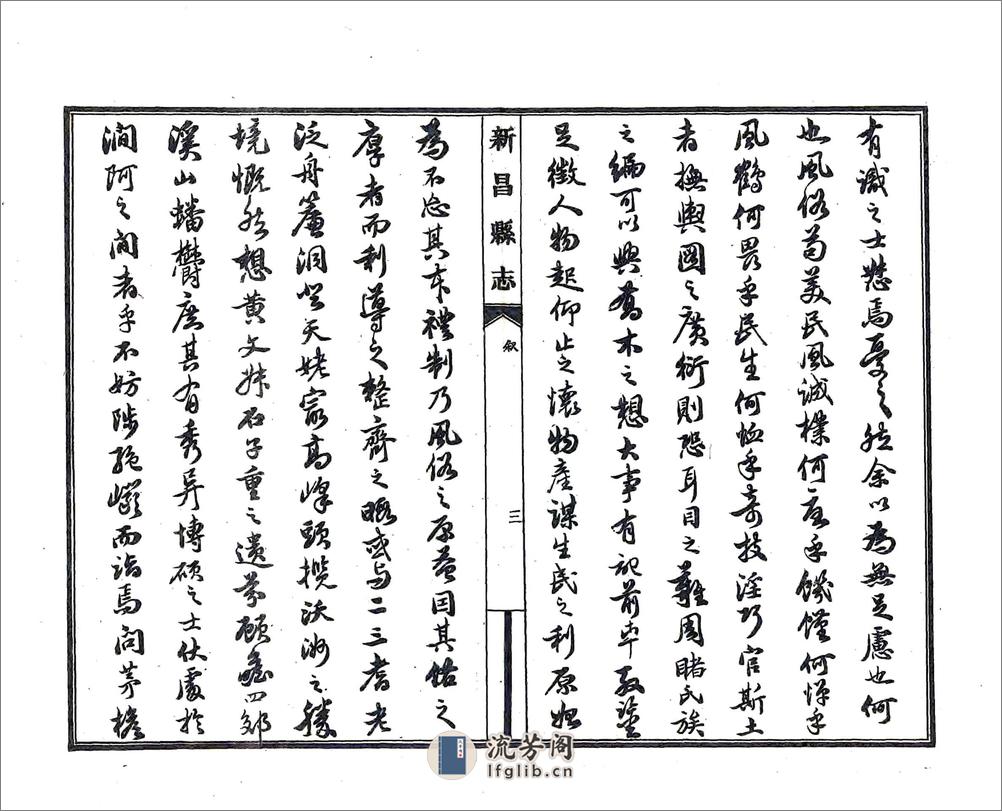 有識之士愁焉憂之然余以為無足慮也何
也風俗苟美民風誠樸何寇乎饑饉何憚乎
風鶴何畏乎民生何恤乎奇技淫巧官斯土
者撫輿圖之廣衍則恐耳目之難周睹氏族
之編可以興喬木之想大事有記前車
足徵人物起仰止之懷物產謀生民之利原
新昌縣志
叙
三
為不忘其本禮制乃風俗之原蓋因其俗之
厚者而利導之整齊之暇或与二三耆老
泛舟簾洞登天姥最高峰頭攬沃洲之勝
境慨然想黃文 石子重之遺芬顧瞻四郊
溪山蟠鬱庶其有秀异博碩之士伏處於
澗阿之間者乎不妨陟絕巘而詣焉問茅檐
流芳阁
lfglib.cn